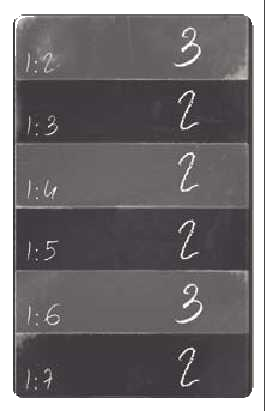 1:2 3
1:3 2
1:4 2
1:5 2
1:6 3
1:7 2